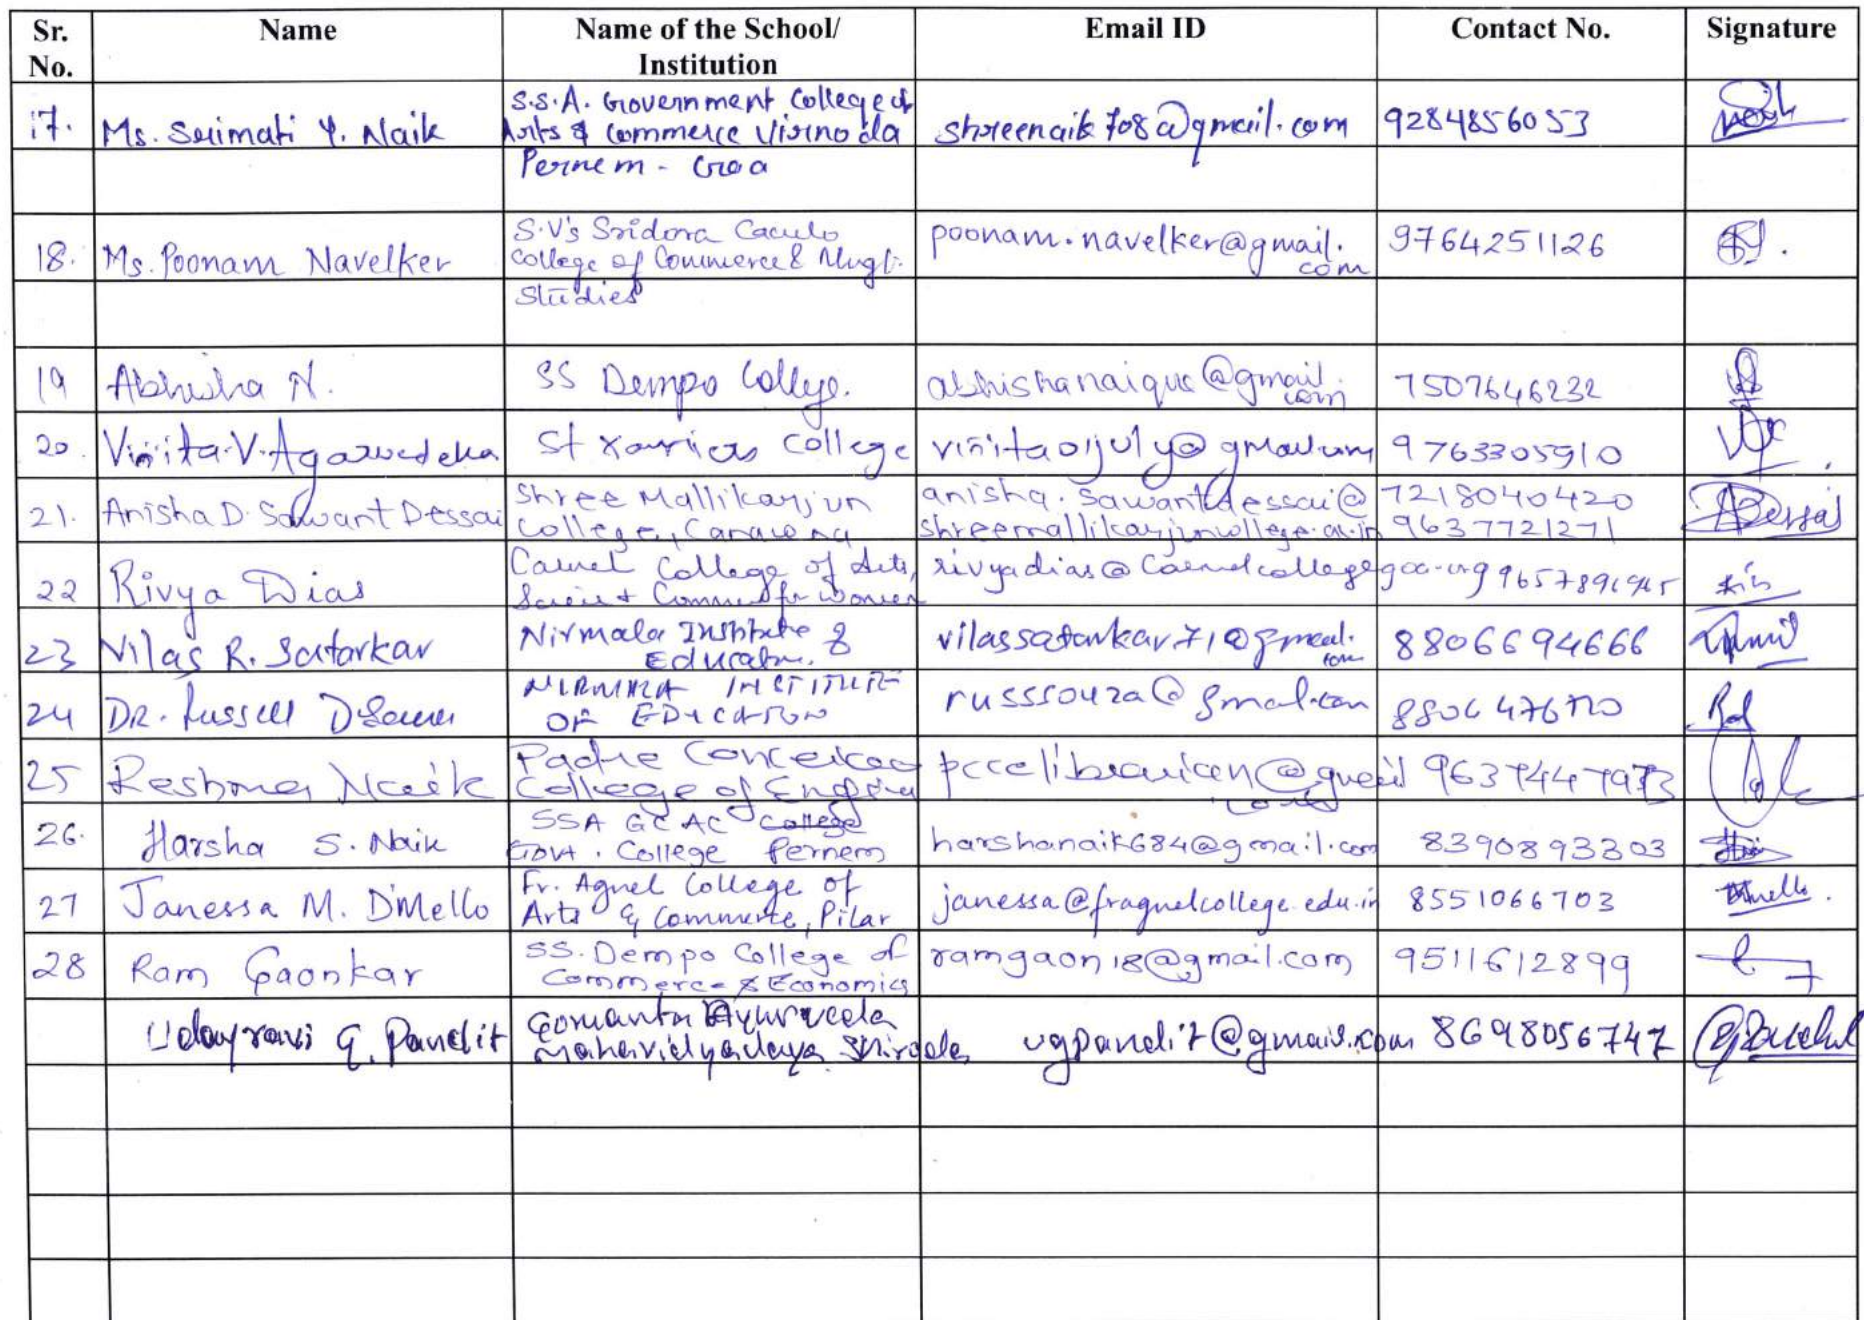 Sr. No. Name Name of the School/ Institution Email ID Contact No. Signature
17. Ms. Srimati Y. Naik S.S.A. Government College of Arts & Commerce Virnoda Pernem - Goa shreenaik708@gmail.com 9284856053
18. Ms. Poonam Navelker S.V's Sridora Caculo College of Commerce & Mngt. Studies poonam.navelker@gmail.com 9764251126
19 Abhisha N. SS Dempo College. 7507646232
20. Vinita V. St Xaviers College vinita01july@ 9763305910
21. Anisha D. Sawant Dessai Shree Mallikarjun College, Canacona anisha.sawantdessai@shreemallikarjuncollege.ac.in 7218040420 9637721271
22 Rivya Dias Carmel College of Arts, Science & Commerce for Women
23 Vilas R. Satarkar Nirmala Institute & Education. vilassatarkar71@gmail.com 8806694666
24 DR. Russell DSouza NIRMALA INSTITUTE OF EDUCATION russsouza@gmail.com
25 Reshma Naik Padre Conceicao College of Engg pccelibrarian@gmail
26. Harsha S. Naik SSA GCAC Govt. College Pernem harshanaik684@gmail.com 8390893303
27 Janessa M. D'Mello Fr. Agnel College of Arts & Commerce, Pilar janessa@fragnelcollege.edu.in 8551066703
28 Ram Gaonkar SS. Dempo College of Commerce & Economics ramgaon18@gmail.com 9511612899
G. Pandit Gomanta Ayurveda Mahavidyalaya Shiroda 8698056747